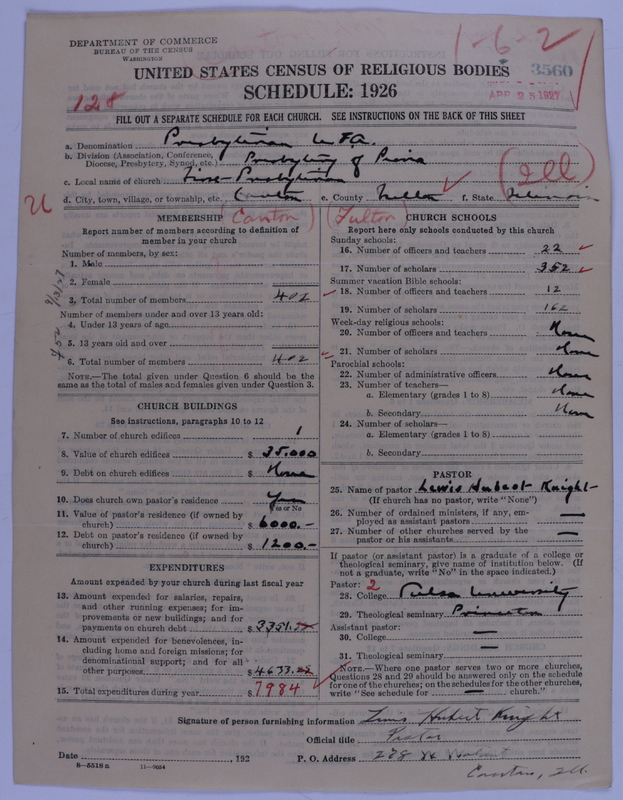 DEPARTMENT OF COMMERCE
BUREAU OF THE CENSUS
WASHINGTON
1-6-2
UNITED STATES CENSUS OF RELIGIOUS BODIES
3560
SCHEDULE: 1926
APR 25 1927
128
FILL OUT A SEPARATE SCHEDULE FOR EACH CHURCH. SEE INSTRUCTIONS ON THE BACK OF THIS SHEET
a. Denomination Presbyterian U.S.A.
b. Division (Association, Conference, Diocese, Presbytery, Synod, etc.) Presbytery of Peoria
c. Local name of church First Presbyterian
(Ill)
d. City, town, village, or township, etc. Canton e. County Fulton f. State Illinois
U
(Canton) (Fulton)
MEMBERSHIP
Report number of members according to definition of
member in your church
Number of members, by sex:
1. Male
2. Female
3. Total number of members 402
Number of members under and over 13 years old:
4. Under 13 years of age
5. 13 years old and over
6. Total number of members 402
NOTE.—The total given under Question 6 should be the
same as the total of males and females given under Question 3.
CHURCH BUILDINGS
See instructions, paragraphs 10 to 12
7. Number of church edifices 1
8. Value of church edifices $ 35.000
9. Debt on church edifices $ None
10. Does church own pastor's residence Yes
Yes or No
11. Value of pastor's residence (if owned by
church) $ 6000.-
12. Debt on pastor's residence (if owned by
church) $ 1200.-
EXPENDITURES
Amount expended by your church during last fiscal year
13. Amount expended for salaries, repairs,
and other running expenses; for im-
provements or new buildings; and for
payments on church debt $ 3351.
14. Amount expended for benevolences, in-
cluding home and foreign missions; for
denominational support; and for all
other purposes $ 4633.
15. Total expenditures during year $ 7984
CHURCH SCHOOLS
Report here only schools conducted by this church
Sunday schools:
16. Number of officers and teachers 22
17. Number of scholars 352
Summer vacation Bible schools:
18. Number of officers and teachers 12
19. Number of scholars 162
Week-day religious schools:
20. Number of officers and teachers None
21. Number of scholars None
Parochial schools:
22. Number of administrative officers None
23. Number of teachers—
a. Elementary (grades 1 to 8) None
b. Secondary None
24. Number of scholars—
a. Elementary (grades 1 to 8)
b. Secondary
PASTOR
25. Name of pastor Lewis Hubert Knight
(If church has no pastor, write "None")
26. Number of ordained ministers, if any, em-
ployed as assistant pastors —
27. Number of other churches served by the
pastor or his assistants —
If pastor (or assistant pastor) is a graduate of a college or
theological seminary, give name of institution below. (If
not a graduate, write "No" in the space indicated.)
Pastor: 2
28. College Tulsa University
29. Theological seminary Princeton
Assistant pastor:
30. College —
31. Theological seminary —
NOTE.—Where one pastor serves two or more churches,
Questions 28 and 29 should be answered only on the schedule
for one of the churches; on the schedules for the other churches,
write "See schedule for — church."
Signature of person furnishing information Lewis Hubert Knight
Official title Pastor
Date , 192 P. O. Address 228 N Walnut
8—5518 a 11—9034
Canton, Ill.